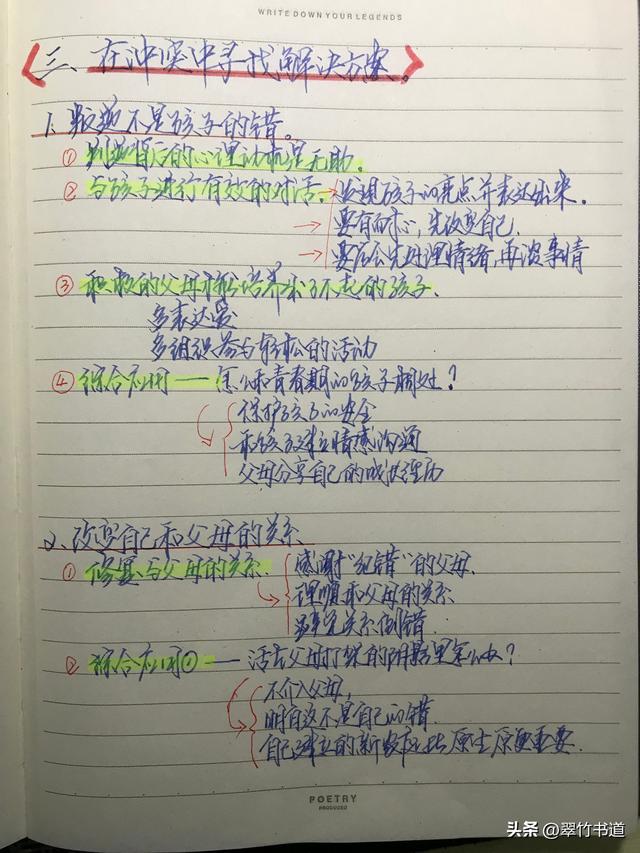 WRITE DOWN YOUR LEGENDS
三、在冲突中寻找解决方案。
1、叛逆不是孩子的错。
①叛逆背后的心理动机是无助。
②与孩子进行有效的对话。→发现孩子的亮点并表达出来。
→要有耐心,先改变自己.
→要学会先处理情绪,再谈事情
③积极的父母才能培养出了不起的孩子.
多表达爱
多组织参与轻松的活动
④综合应用——怎么和青春期的孩子相处?
保护孩子的安全
和孩子建立情感沟通
父母分享自己的成长经历
2、改变自己和父母的关系
①修复与父母的关系.感谢“犯错”的父母.
理顺和父母的关系
避免关系倒错
②综合应用①——活在父母打架的阴影里怎么办?
不介入父母,
明白这不是自己的错.
自己建立的新家庭比原生家庭重要.
POETRY
PRODUCED
头条@翠竹书道